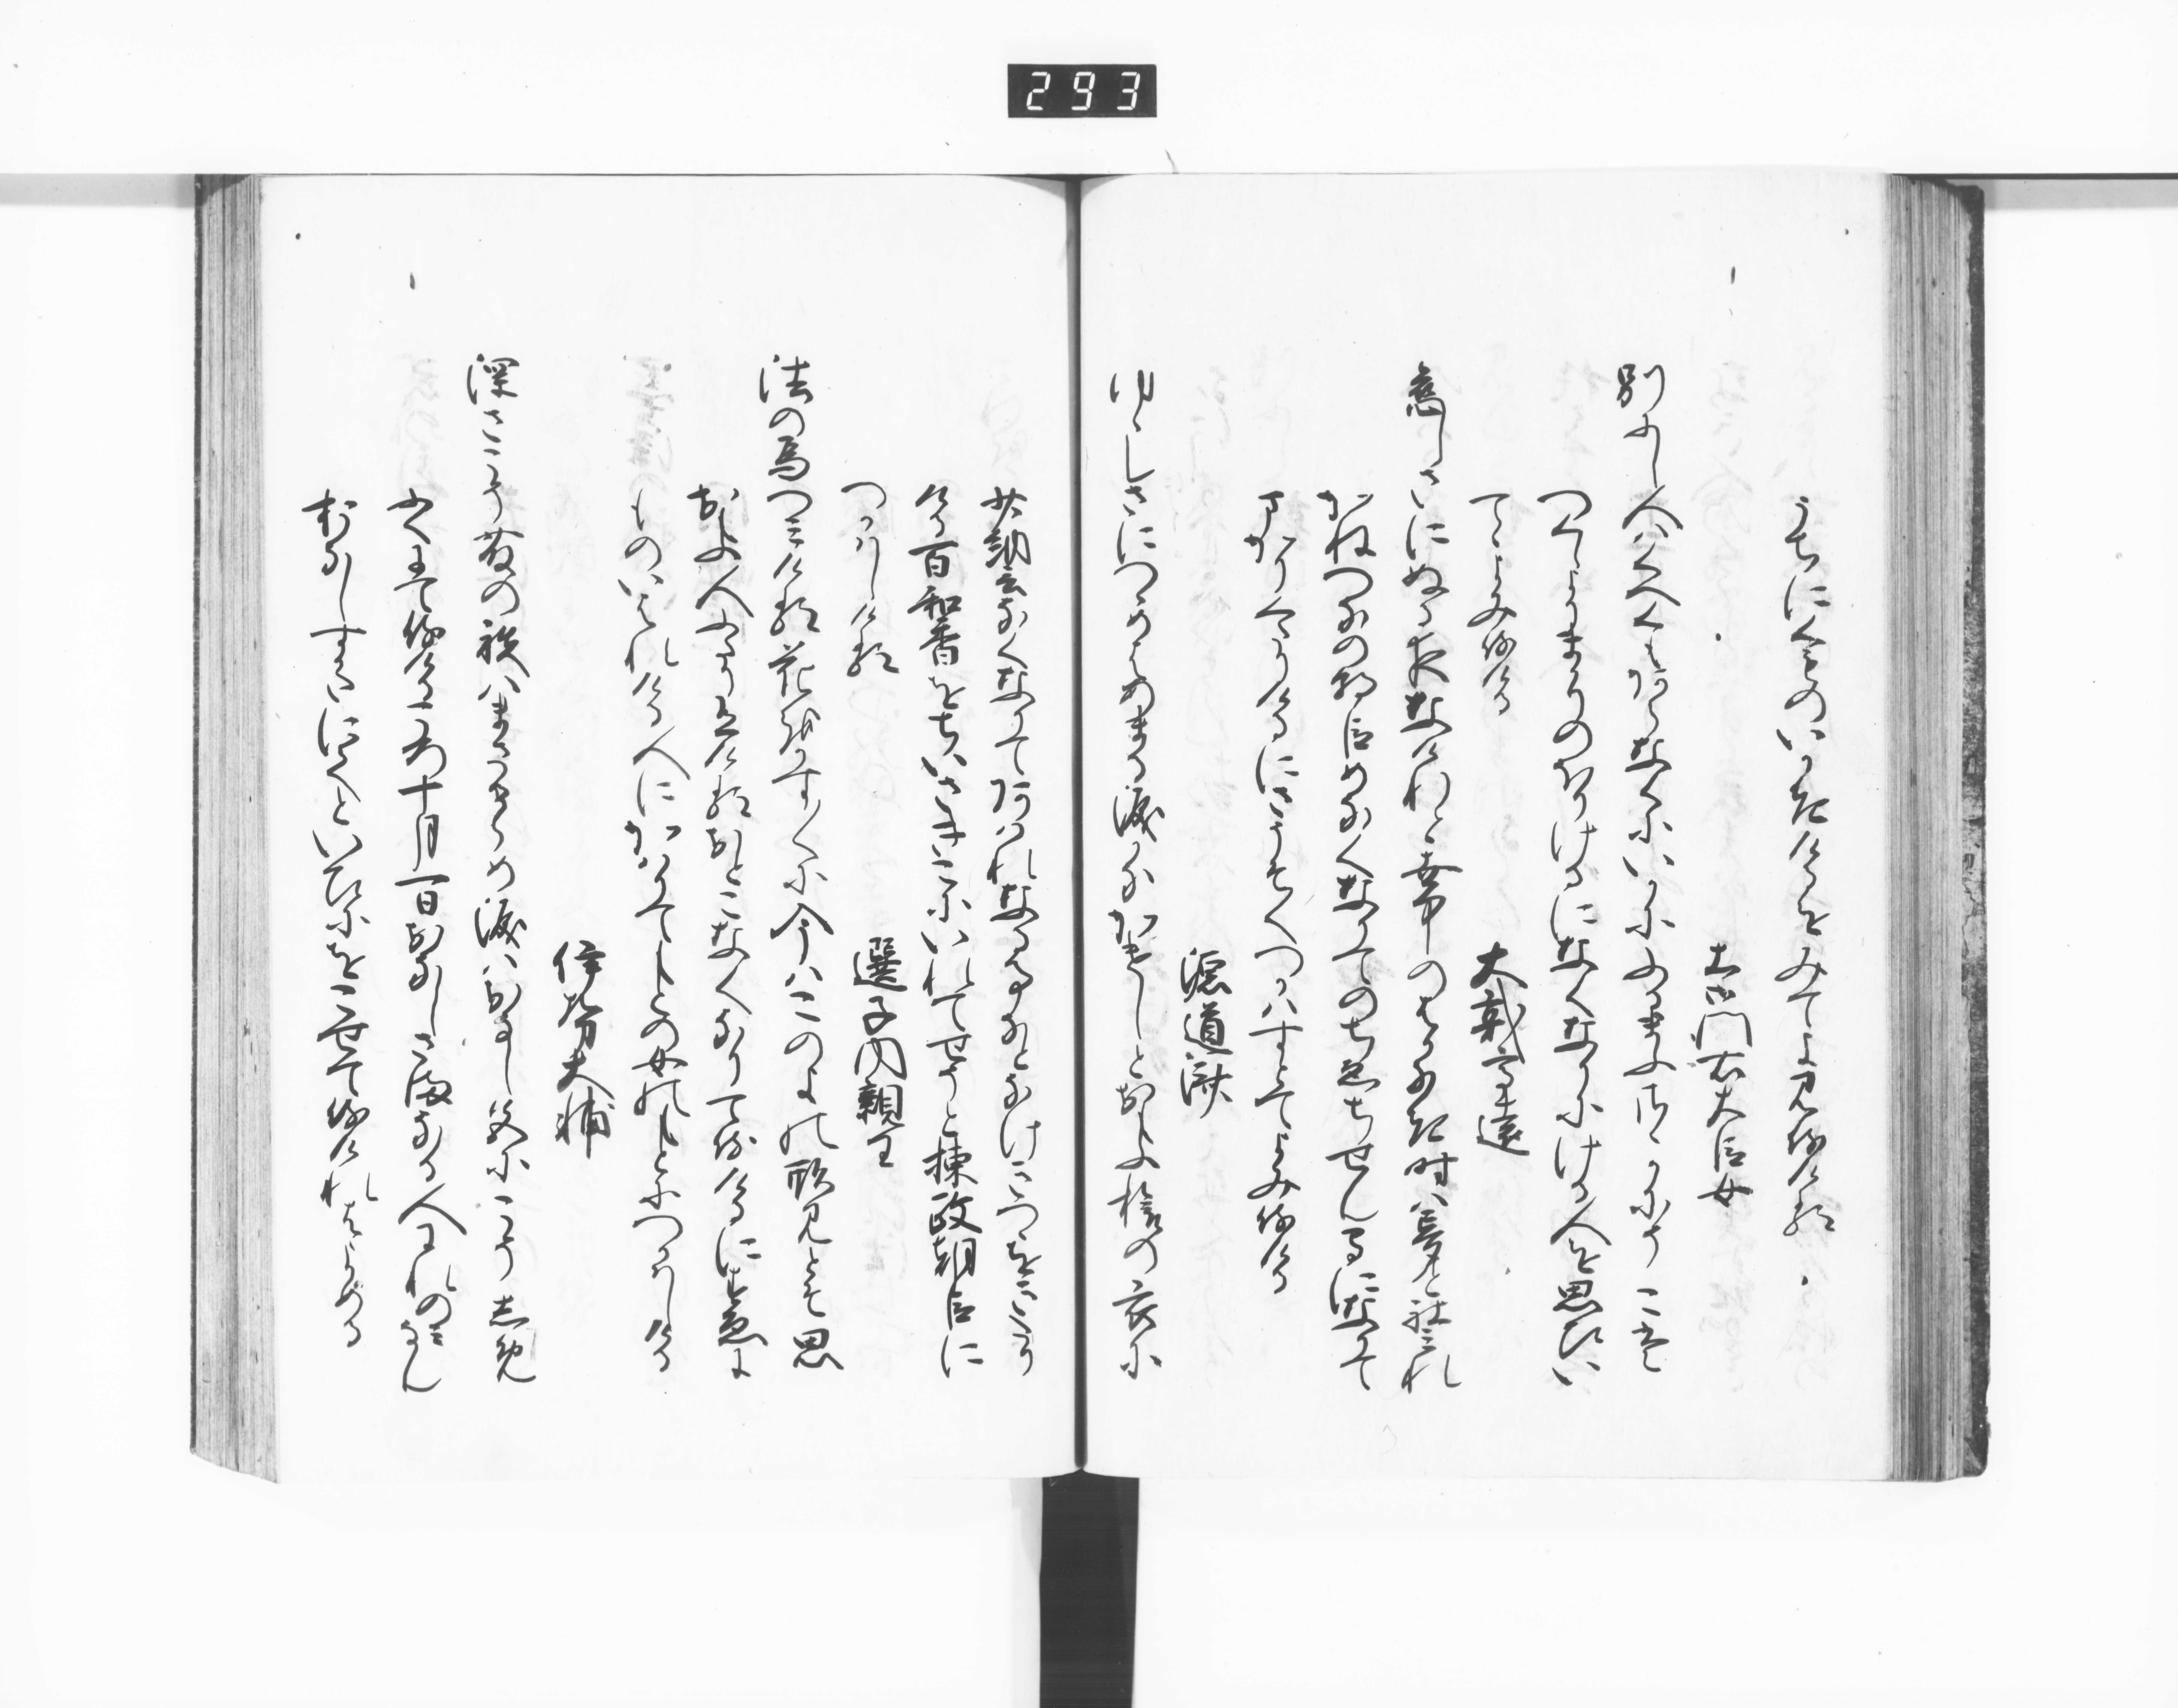 293
うちに人のいりたりけるをみてよみ侍ける
土御門右大臣女
別にし人はくへくもあらなくにいかにふるまふさゝかにそこは
つくしよりまかりのほりけるになくなりにける人を思いて
てよみ侍ける
大弐高遠
恋しさにぬる夜なけれと世中のはかなき時は夢とこそみれ
かねつなの朝臣めなくなりてのちゑちせんになりて
まかりくたりけるにさうそくつかはすとてよみ侍ける
源道済
ゆゝしさにつゝめとあまる涙かなかけしとおもふ旅の衣に
少納言なくなりてあはれなる事なとなけきつゝをきたり
ける百和香をちいさきこにいれてせうと棟政朝臣に
つかはしける
選子内親王
法の為つみける花をかす〳〵に今はこのよの形見とそ思
おもふ人ふたり立けるおとこなくなりて侍けるにすゑに
ものいはれける人にかはりてもとの女のもとにつかはしける
伊勢大輔
深さこそ藤の袂はまさるらめ涙はおなし色にこそしめ
入道にて侍ける十月一日おなしさまなる人
むかしすみ侍